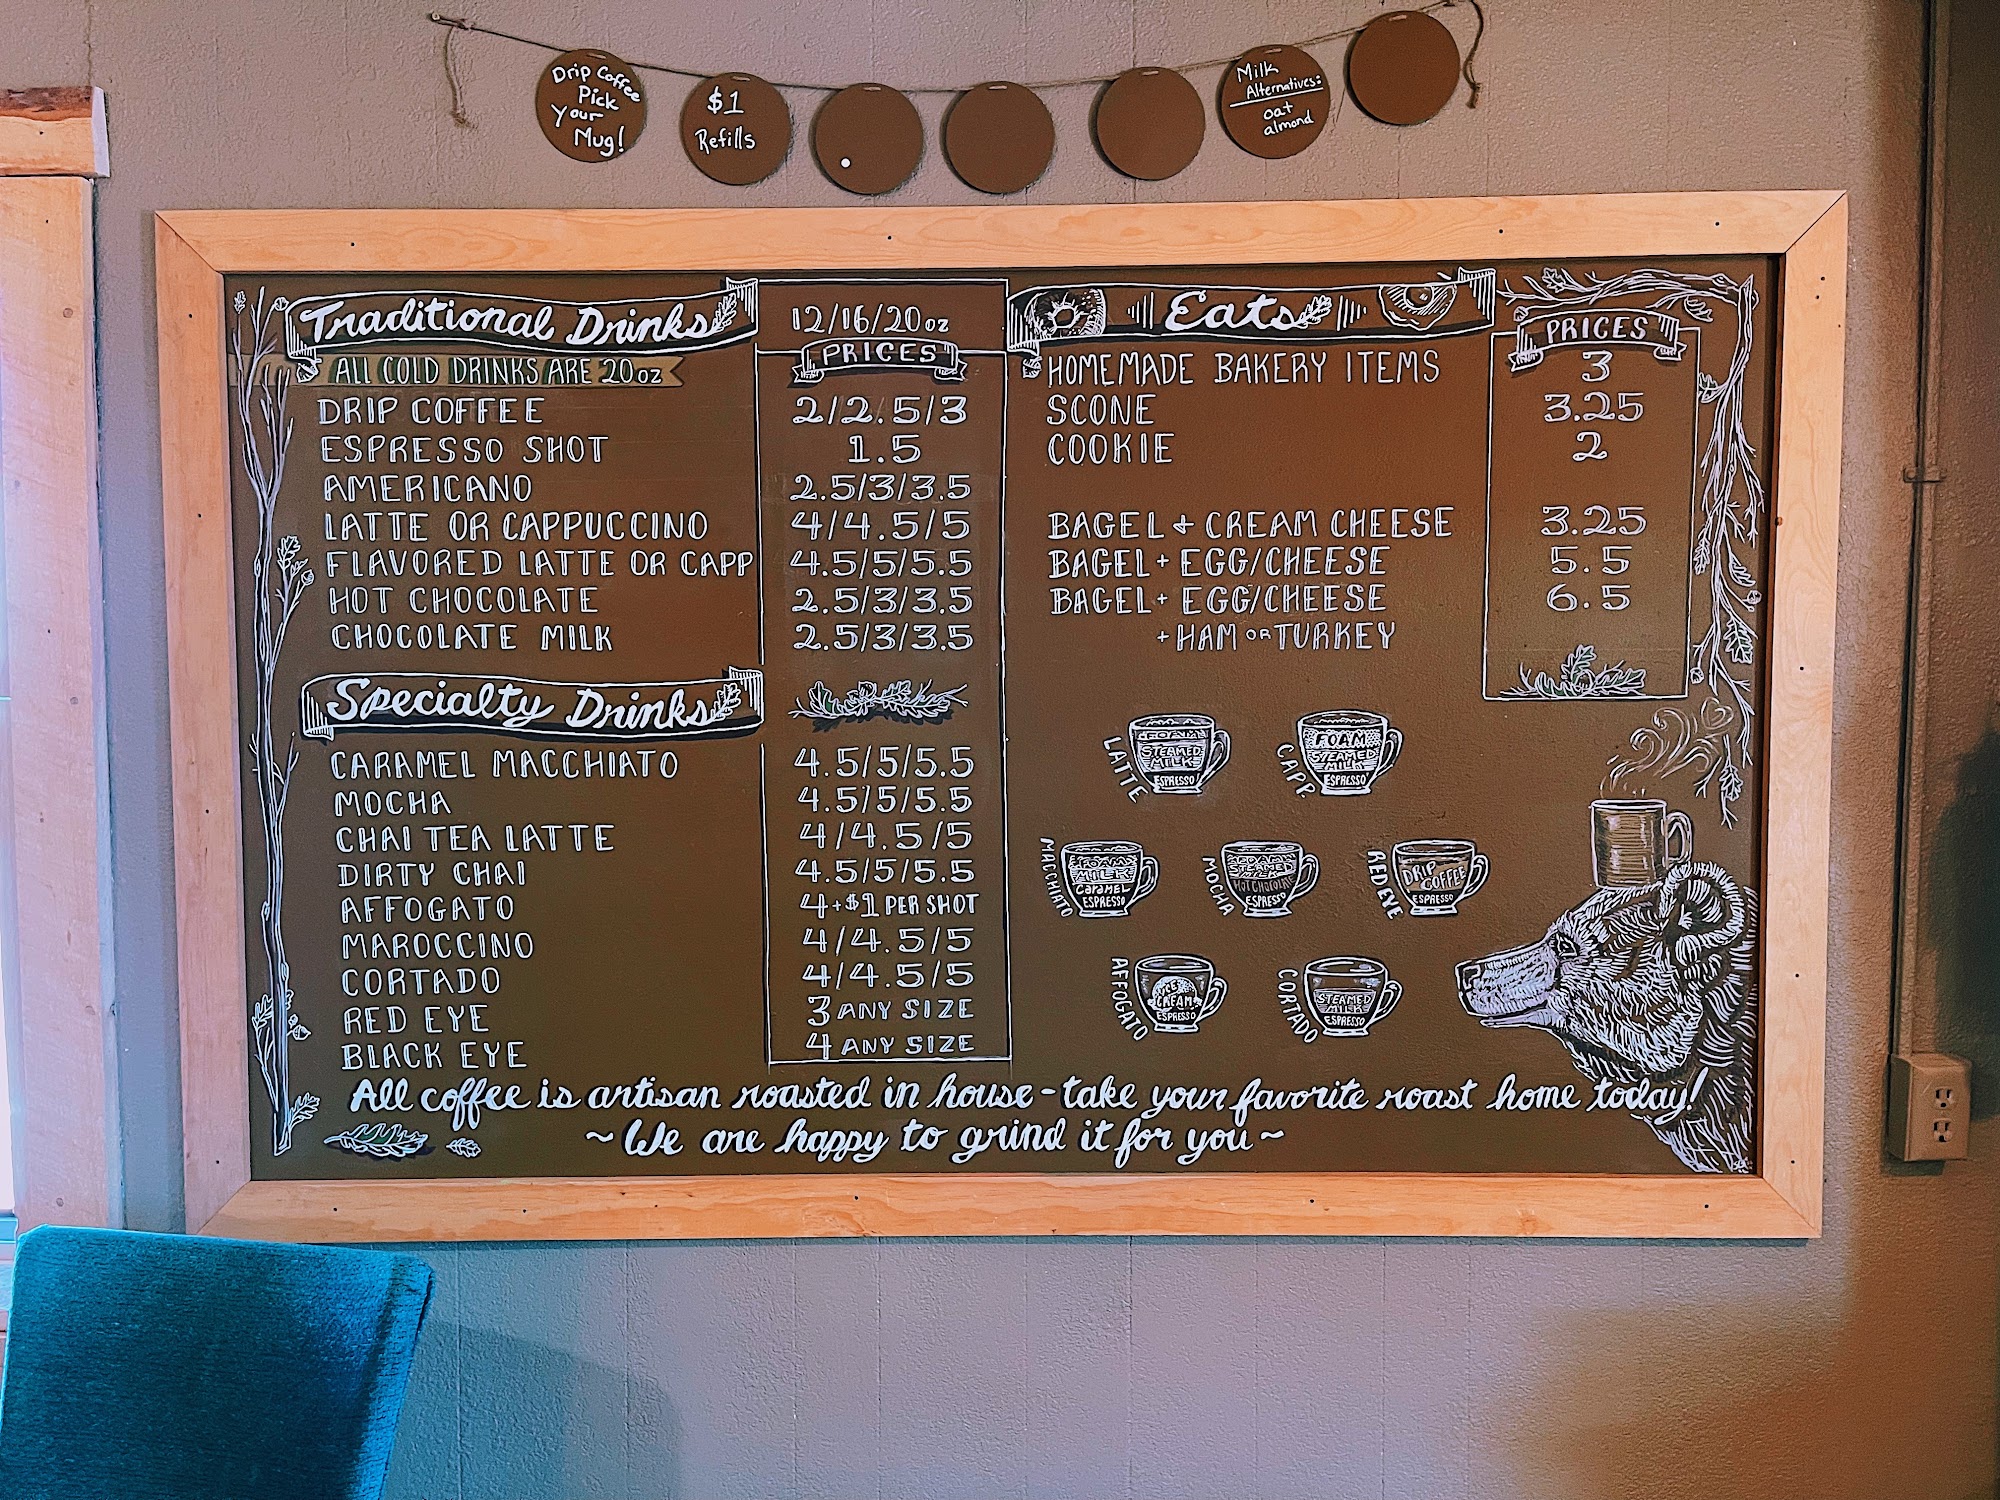 Drip Coffee
Pick
Your
Mug!
$1
Refills
Milk
Alternatives:
oat
almond
Traditional Drinks
12/16/20oz
PRICES
ALL COLD DRINKS ARE 20oz
DRIP COFFEE 2/2.5/3
ESPRESSO SHOT 1.5
AMERICANO 2.5/3/3.5
LATTE OR CAPPUCCINO 4/4.5/5
FLAVORED LATTE OR CAPP 4.5/5/5.5
HOT CHOCOLATE 2.5/3/3.5
CHOCOLATE MILK 2.5/3/3.5
Specialty Drinks
CARAMEL MACCHIATO 4.5/5/5.5
MOCHA 4.5/5/5.5
CHAI TEA LATTE 4/4.5/5
DIRTY CHAI 4.5/5/5.5
AFFOGATO 4+$1 PER SHOT
MAROCCINO 4/4.5/5
CORTADO 4/4.5/5
RED EYE 3 ANY SIZE
BLACK EYE 4 ANY SIZE
Eats
PRICES
HOMEMADE BAKERY ITEMS 3
SCONE 3.25
COOKIE 2
BAGEL + CREAM CHEESE 3.25
BAGEL + EGG/CHEESE 5.5
BAGEL + EGG/CHEESE 6.5
+ HAM OR TURKEY
LATTE
FOAM
STEAMED
MILK
ESPRESSO
CAPP.
FOAM
STEAMED
MILK
ESPRESSO
MACCHIATO
FOAM
MILK
CARAMEL
ESPRESSO
MOCHA
STEAMED
MILK
HOT CHOCOLATE
ESPRESSO
RED EYE
DRIP
COFFEE
ESPRESSO
AFFOGATO
ICE
CREAM
ESPRESSO
CORTADO
STEAMED
MILK
ESPRESSO
All coffee is artisan roasted in house - take your favorite roast home today!
~ We are happy to grind it for you ~